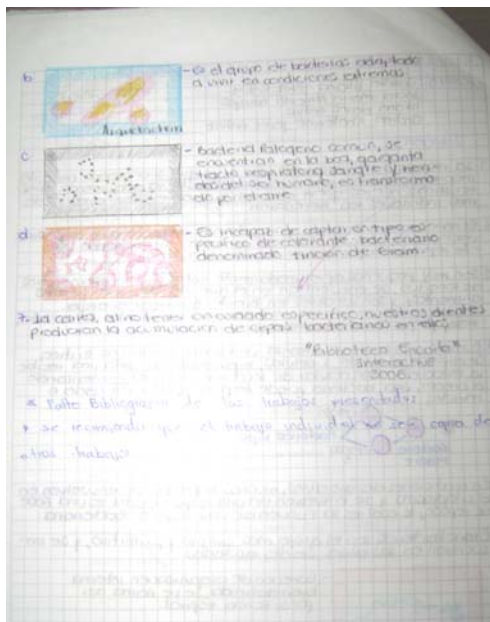 b
- Es el grupo de bacterias adaptado
a vivir en condiciones extremas.
Arquebacteria
c
- Bacteria Patogeno comun, se
encuentran en la boca, garganta
tracto respiratorio, sangre y
del ser humano, es
do por el aire.
d
- Es incapaz de captar un tipo es-
pecifico de colorante bacteriano
denominado tincion de Gram.
7. La caries, al no tener un cuidado especifico, nuestros dientes
producirian la acumulacion de cepas bacterianas en
"Biblioteca Encarta"
Interactiva
2006.
* Falto Bibliografia de los trabajos presentados
* se recomienda que el trabajo individual no sea copia de
otros trabajos